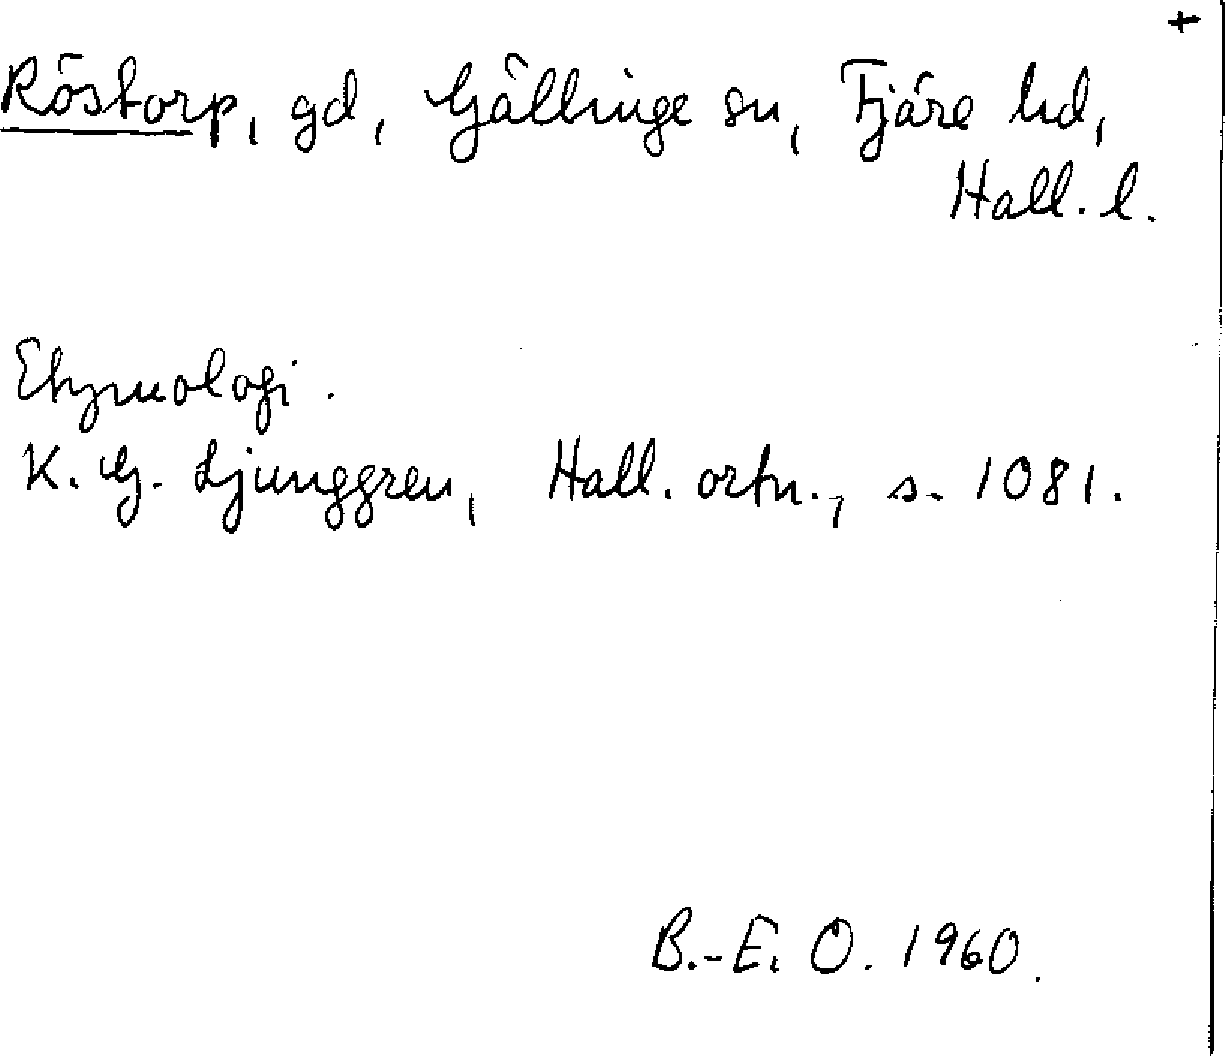 +
Röstorp, gd, Gällinge sn, Fjäre hd,
Hall. l.
Etymologi.
K. G. Ljunggren, Hall. ortn., s. 1081.
B.-E. O. 1960.